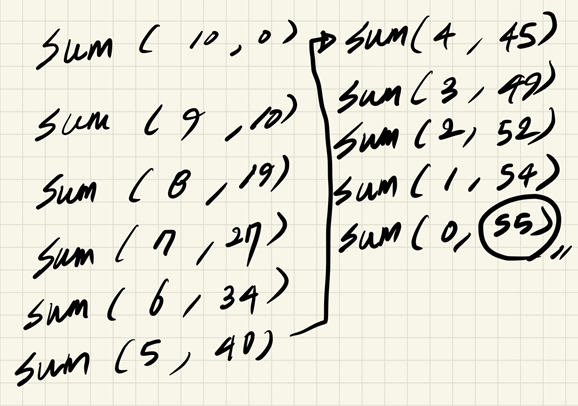 Sum ( 10 , 0 )
Sum ( 9 , 10 )
Sum ( 8 , 19 )
Sum ( 7 , 27 )
Sum ( 6 , 34 )
Sum ( 5 , 40 )
Sum ( 4 , 45 )
Sum ( 3 , 49 )
Sum ( 2 , 52 )
Sum ( 1 , 54 )
Sum ( 0 , 55 )